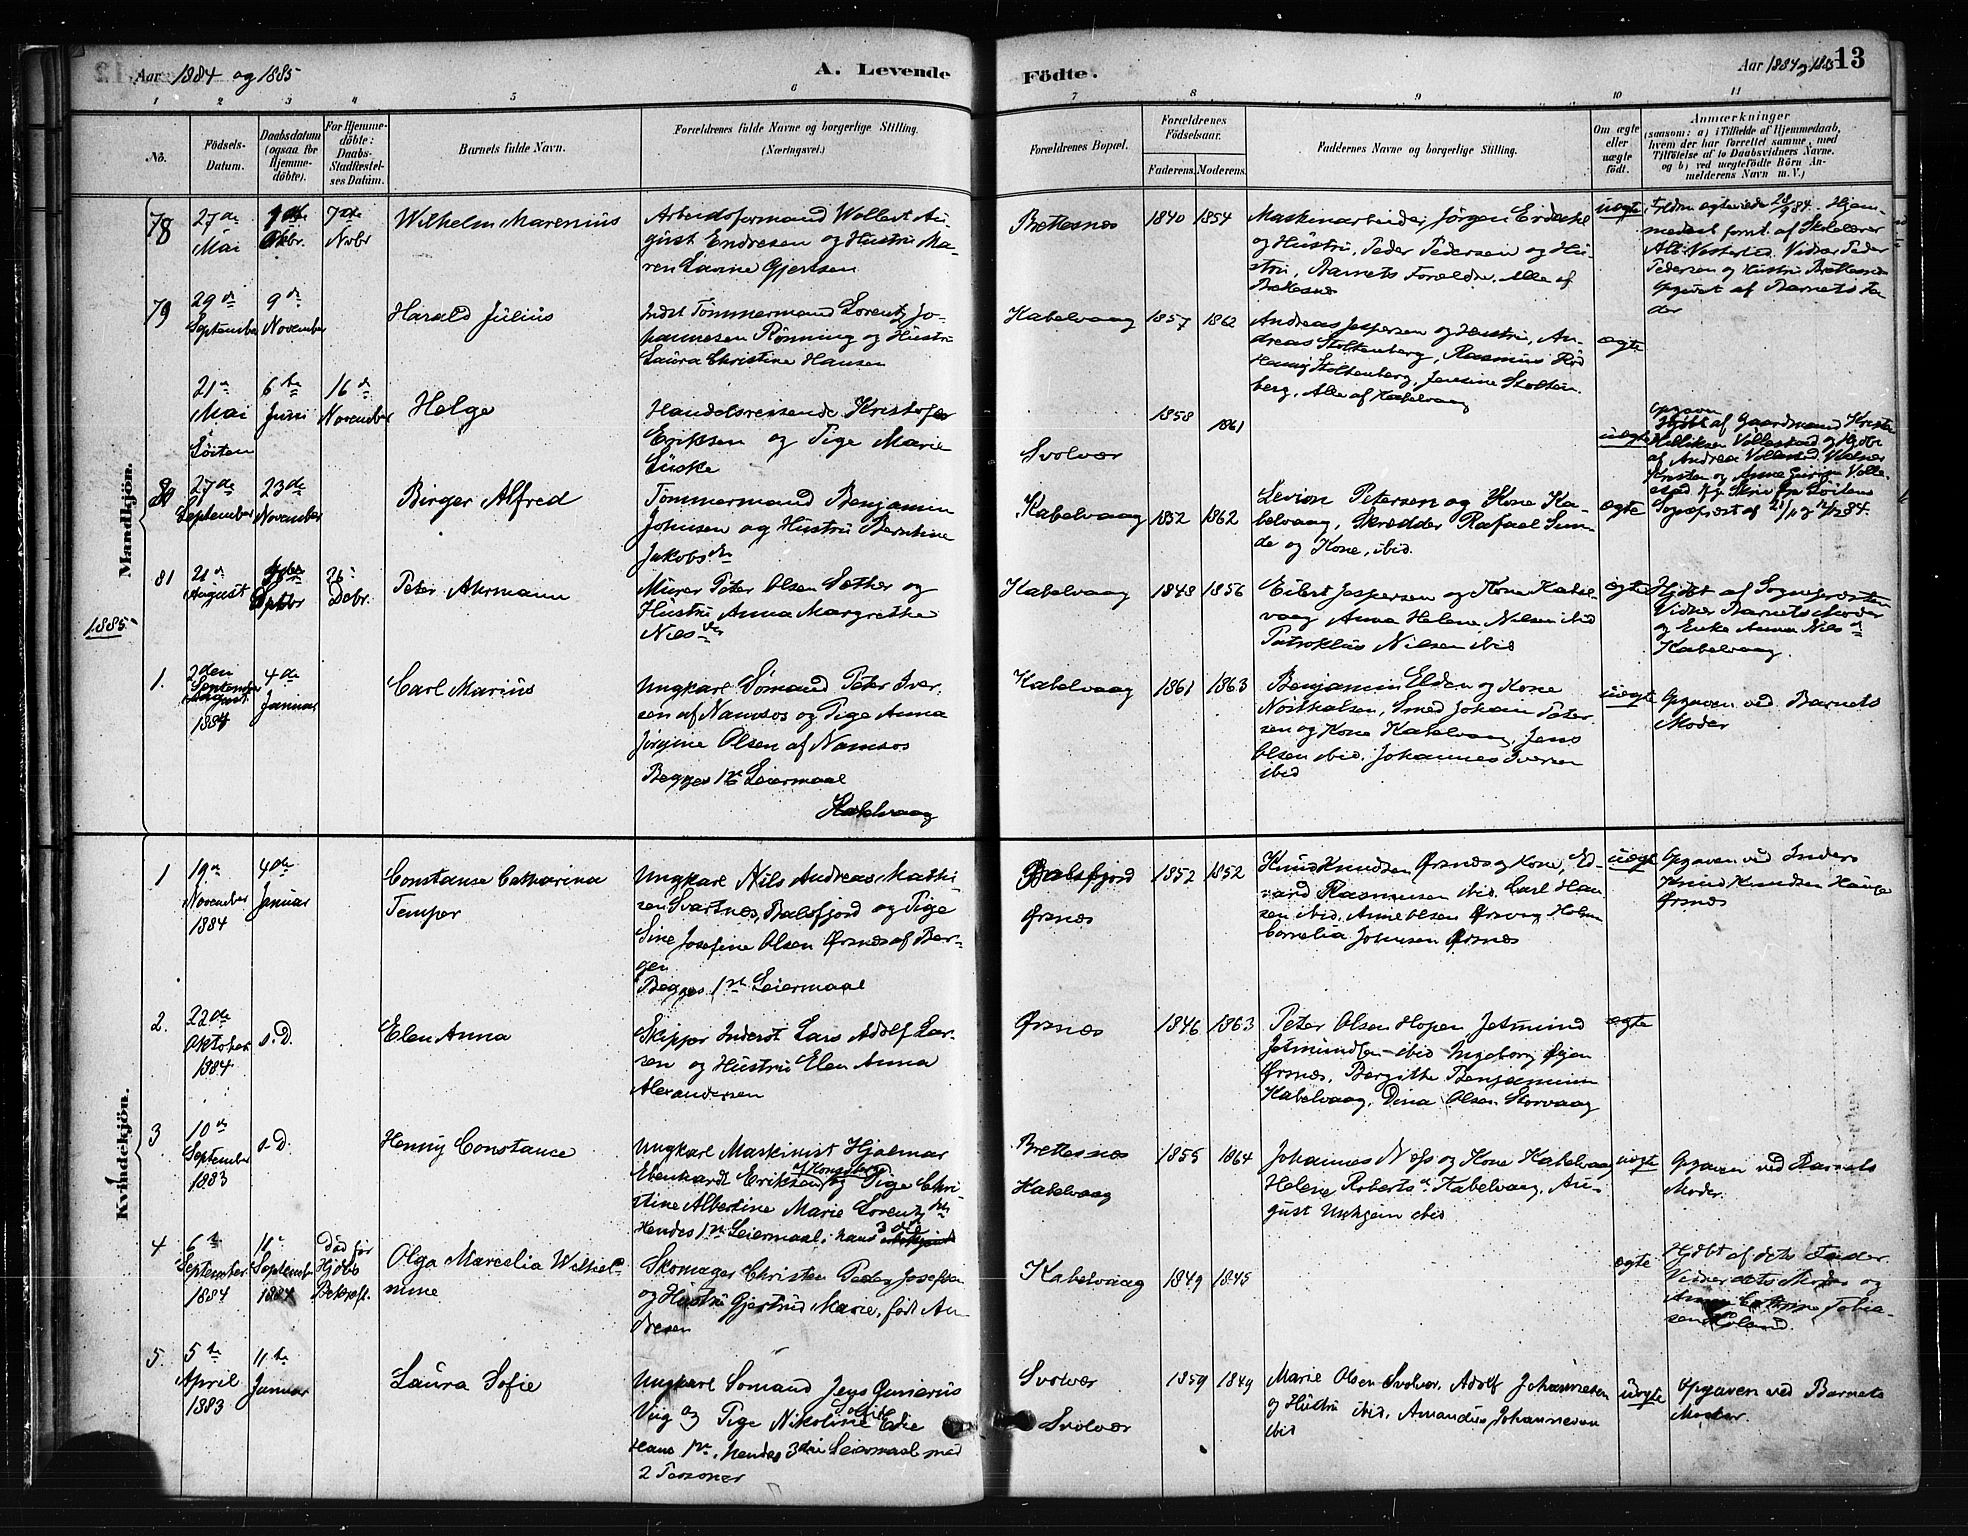 Aar 1884 og 1885
A. Levende
Födte.
Aar 1884 og 1885
13
1 2 3 4 5 6 7 8 9 10 11
No.
Födsels-
Datum.
Daabsdatum
(ogsaa for
Hjemme-
döbte).
For Hjemme-
döbte:
Daabs-
Stadfæstel-
ses Datum.
Barnets fulde Navn.
Forældrenes fulde Navne og borgerlige Stilling.
(Næringsvei.)
Forældrenes Bopæl.
Forældrenes
Födselsaar.
Faderens.
Moderens.
Faddernes Navne og borgerlige Stilling.
Om ægte
eller
uægte
födt.
Anmærkninger
(saasom: a) i Tilfælde af Hjemmedaab,
hvem der har forrettet samme, med
Tilföielse af to Daabsvidners Navne.
og b) ved uægtefödte Börn An-
melderens Navn m. V.)
Mandkjön.
78
27de
Mai
Oktbr.
7de
Novbr
Wilhelm Marenius
Arbeidsformand Wollert Au-
gust Endresen og Hustru Ma-
ren Lavine Gjertsen
Brettesnæs
1840
1854
Maskinarbeider Jörgen
og Hustru, Peder Pedersen og Hu-
stru, Barnets Forældre. Alle af
Brettesnæs
uægte
Hjem-
medøbt forrt. af Skolelærer
Vidner Peder
Pedersen og Hustru Brettesnæs
Opgivet af Barnets Fa-
der
79
29de
September
9de
November
Harald Julius
Indst Tømmermand Lorentz Jo-
hannesen Rønning og Hustru
Laura Christine Hansen
Kabelvaag
1857
1862
Andreas Jespersen og Hustru, An-
dreas Stoltenberg, Rasmus Röd
Stoltenberg, Jensine Stolten-
berg, Alle af Kabelvaag
ægte
21de
Mai
Löiten
6te
Juni
16de
November
Helge
Handelsreisende Kristofer
Eriksen og Pige Marie
Luske
Svolvær
1858
1861
uægte
Opgaven
Hjdbt af Gaardmand Kristen
Helliksen Vollestad
af Andrea Vollestad. Vidner
Kristen og Anne
Sognepræst af
80
27de
September
23de
November
Birger Alfred
Tømmermand Benjamin
Johnsen og Hustru Berntine
Jakobsdr
Kabelvaag
1852
1862
Levion Petersen og Kone Ka-
belvaag, Skrædder Rafael Sun-
de og Kone, ibid.
ægte
81
21de
August
Septbr
26
Decbr.
Peter Ahrmann
Murer Peter Olsen Sæther og
Hustru Anna Margrethe
Nilsdr
Kabelvaag
1848
1856
Eilert Jespersen og Kone Kabel-
vaag Anna Helene Nilsen ibid
Patroklus Nilsen ibid
ægte
Hjdbt af Sognepræsten
Vidner Barnets Moder
og Enke Anna Nilsdr
Kabelvaag.
1885
1.
2den
September
1884
4de
Januar
Carl Marius
Ungkarl Sømand Peter Iver-
sen af Namsos og Pige Anna
Jørgine Olsen af Namsos
Begges 1ste Leiermaal
Kabelvaag
Kabelvaag
1861
1863
Benjamin Elden og Kone
Smed Johan Peter-
sen og Kone Kabelvaag, Jens
Olsen ibid. Johannes Iversen
ibid
uægte
Opgaven ved Barnets
Moder
Kvindekjön.
1
19de
November
1884
4de
Januar
Constanse Catharina
Temper
Ungkarl Nils Andreas Mathi-
sen Svartnes, Balsfjord og Pige
Sine Josefine Olsen Ørsnæs af Ber-
gen
Begges 1ste Leiermaal
Balsfjord
Ørsnæs
1852
1852
Knud Knudsen Ørsnæs og Kone, Ed-
vard Rasmussen ibid. Carl Han-
sen ibid, Anne Olsen Ørsvåg Holm
Cornelia Johnsen Ørsnæs
uægte
Opgaven ved Inders
Knud Knudsen
Ørsnæs
2.
22de
Oktober
1884
s.D.
Elen Anna
Skipper Inderst Lars Adolf Lar-
sen og Hustru Elen Anna
Alexandersen
Ørsnæs
1846
1863
Peter Olsen Hopen, Jetmund
Jetmundsen ibid Ingeborg
Ørsnæs, Bergitte Benjaminsen
Kabelvaag, Dina Olsen Storvaag
ægte
3
10de
September
1883
s.D.
Henny Constance
Ungkarl Maskinist Hjalmar
Eberhardt Eriksen af Kongsberg og Pige Chri-
stine Albertine Marie Lorentzdtr
Hendes 1ste Leiermaal, hans 3die
Brettesnæs
Kabelvaag
1855
1864
Johannes Næss og Kone Kabelvaag
Helene Robertsdr Kabelvaag, Au-
gust ibid
uægte
Opgaven ved Barnets
Moder.
4
6te
September
1884
11te
September
1884
Död før
Hjdbs
Bekræft.
Olga Marcelia Wilhel-
mine
Skomager Christen Peder Josefsen
og Hustru Gjertrud Marie, født An-
dresen
Kabelvaag
1849
1845
ægte
Hjdbt af dets Fader
Vidner dets Moder og
Anna Cathrine Tobia-
sen
5.
5te
April
1883
11te
Januar
Laura Sofie
Ungkarl Sømand Jens
Vig og Pige Nikoline
Hans 1ste, hendes 3die Leiermaal med
2 Personer
Svolvær
Svolvær
1859
1849
Marie Olsen Svolvær, Adolf Johannesen
og Hustru ibid. Amandus Johannesen
ibid
uægte
Opgaven ved Barnets
Moder.